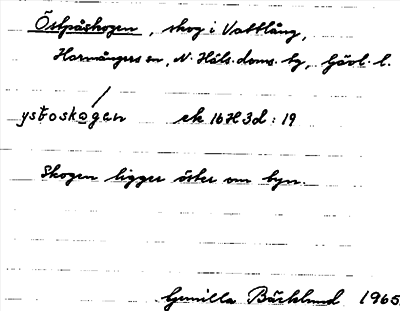 Östpåskogen, skog i Vattlång,
Harmångers sn, N. Häls. doms. tg, Gävl. l.
ystoskogen ek 16H3d:19
Skogen ligger öster om byn.
Gunilla Bäcklund 1965